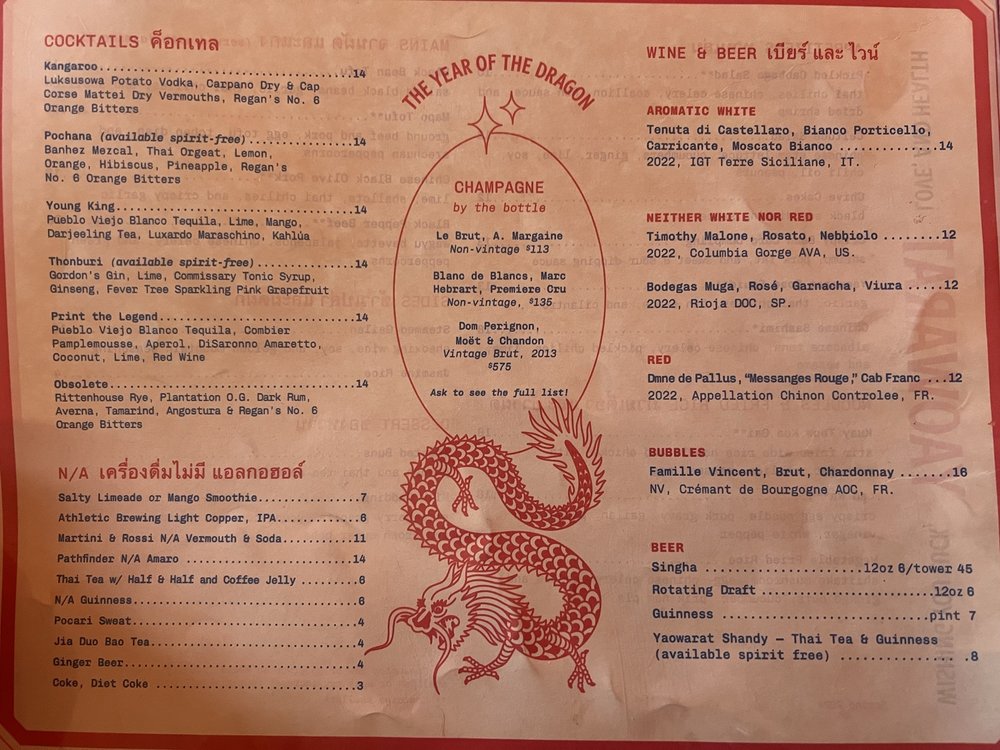 COCKTAILS ค็อกเทล
Kangaroo...14
Luksusowa Potato Vodka, Carpano Dry & Cap
Corse Mattei Dry Vermouths, Regan's No. 6
Orange Bitters
Pochana (available spirit-free)...14
Banhez Mezcal, Thai Orgeat, Lemon,
Orange, Hibiscus, Pineapple, Regan's
No. 6 Orange Bitters
Young King...14
Pueblo Viejo Blanco Tequila, Lime, Mango,
Darjeeling Tea, Luxardo Maraschino, Kahlúa
Thonburi (available spirit-free)...14
Gordon's Gin, Lime, Commissary Tonic Syrup,
Ginseng, Fever Tree Sparkling Pink Grapefruit
Print the Legend...14
Pueblo Viejo Blanco Tequila, Combier
Pamplemousse, Aperol, DiSaronno Amaretto,
Coconut, Lime, Red Wine
Obsolete...14
Rittenhouse Rye, Plantation O.G. Dark Rum,
Averna, Tamarind, Angostura & Regan's No. 6
Orange Bitters
N/A เครื่องดื่มไม่มี แอลกอฮอล์
Salty Limeade or Mango Smoothie...7
Athletic Brewing Light Copper, IPA...6
Martini & Rossi N/A Vermouth & Soda...11
Pathfinder N/A Amaro ...14
Thai Tea w/ Half & Half and Coffee Jelly ...6
N/A Guinness...6
Pocari Sweat...4
Jia Duo Bao Tea...4
Ginger Beer...4
Coke, Diet Coke ...3
THE YEAR OF THE DRAGON
CHAMPAGNE
by the bottle
Le Brut, A. Margaine
Non-vintage $113
Blanc de Blancs, Marc
Hebrart, Premiere Cru
Non-vintage, $135
Dom Perignon,
Moët & Chandon
Vintage Brut, 2013
$575
Ask to see the full list!
WINE & BEER เบียร์ และ ไวน์
AROMATIC WHITE
Tenuta di Castellaro, Bianco Porticello,
Carricante, Moscato Bianco ...14
2022, IGT Terre Siciliane, IT.
NEITHER WHITE NOR RED
Timothy Malone, Rosato, Nebbiolo ...12
2022, Columbia Gorge AVA, US.
Bodegas Muga, Rosé, Garnacha, Viura ...12
2022, Rioja DOC, SP.
RED
Dmne de Pallus, "Messanges Rouge," Cab Franc ...12
2022, Appellation Chinon Controlee, FR.
BUBBLES
Famille Vincent, Brut, Chardonnay ...16
NV, Crémant de Bourgogne AOC, FR.
BEER
Singha ...12oz 6/tower 45
Rotating Draft ...12oz 6
Guinness ...pint 7
Yaowarat Shandy – Thai Tea & Guinness
(available spirit free) ...8